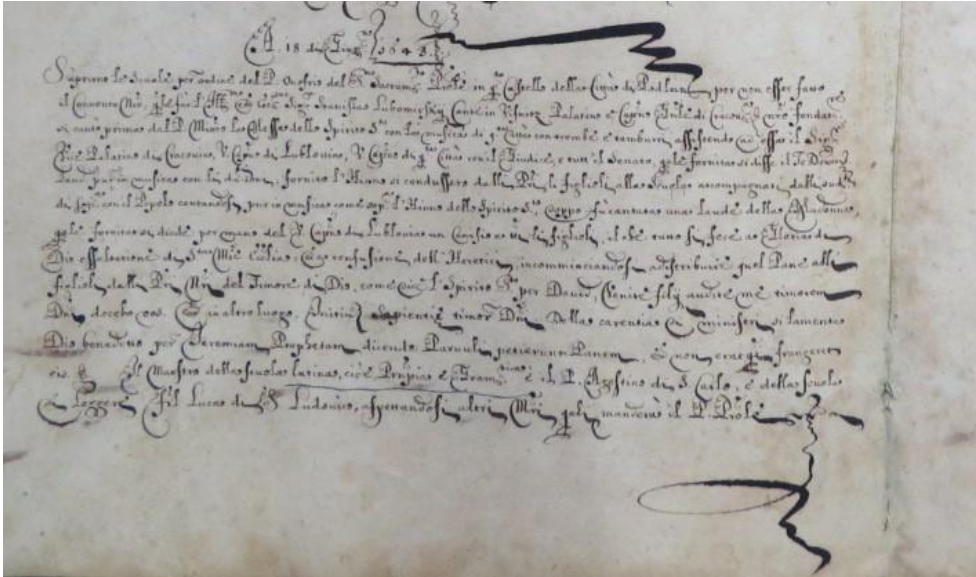 A. 18 di Giug.º 1643.
S'aprirno le Scuole per ordine del P. Onofrio del S.mo Sacram.to Prõle in q.º Castello della Città di Podlino per non esser fatto
il Convento Nrõ, q.le fu l'Ill.mo Stanislao Lubomirsky Conte in Visnicz Palatino e Cap.no Gñle di Cracovia, e nrõ fondat.re
si cantò prima dal P. Miro la Messa dello Spirito S.to con la musica di q.ª Città con trombe e tamburri assistendo ad essa il Sig.r
Vice Palatino di Cracovia, V. Cap.no di Lublovia, V. Cap.no di q.ª Città con il Giudice, e tutt'il Senato, q.le fornita si disse il Te Deum
fornito l'Hinno si condussero dalli Pri li figlioli alla Scuola accompagnati dalli
con il Popolo cantandosi pur in musica come sop.ª l'Hinno dello Spirito S.to, e doppo fu cantata una laude della Madonna,
q.le fornita si diede per mano del V. Cap.no di Lublovia un a tt.i li figlioli, il che tutto si fece a Gloria di
Dio essaltatione di S.ta Mrẽ Ecclia e confusione dell'Heretici, incomminciandosi a distribuire quel Pane alli
figlioli dalli Pri Nri del Timore di Dio, come dice l'Spirito S.to per David, Venite filij audite me timorem
Dñi docebo vos. Et in altro luogo, Initium Sapientie timor Dñi. Della carentia di ministri si lamenta
Dio benedetto per Jeremiam Prophetam dicendo, Parvuli petierunt Panem, et non erat qui frangeret
eis. Il Maestro della scuola latina, cioè Principij e Gram.tica è il P. Agostino di S. Carlo, e della scuola
di Leggere Fil Luca di S. Ludovico, aspettandosi altri Mri q.li mandarà il P. Prõle